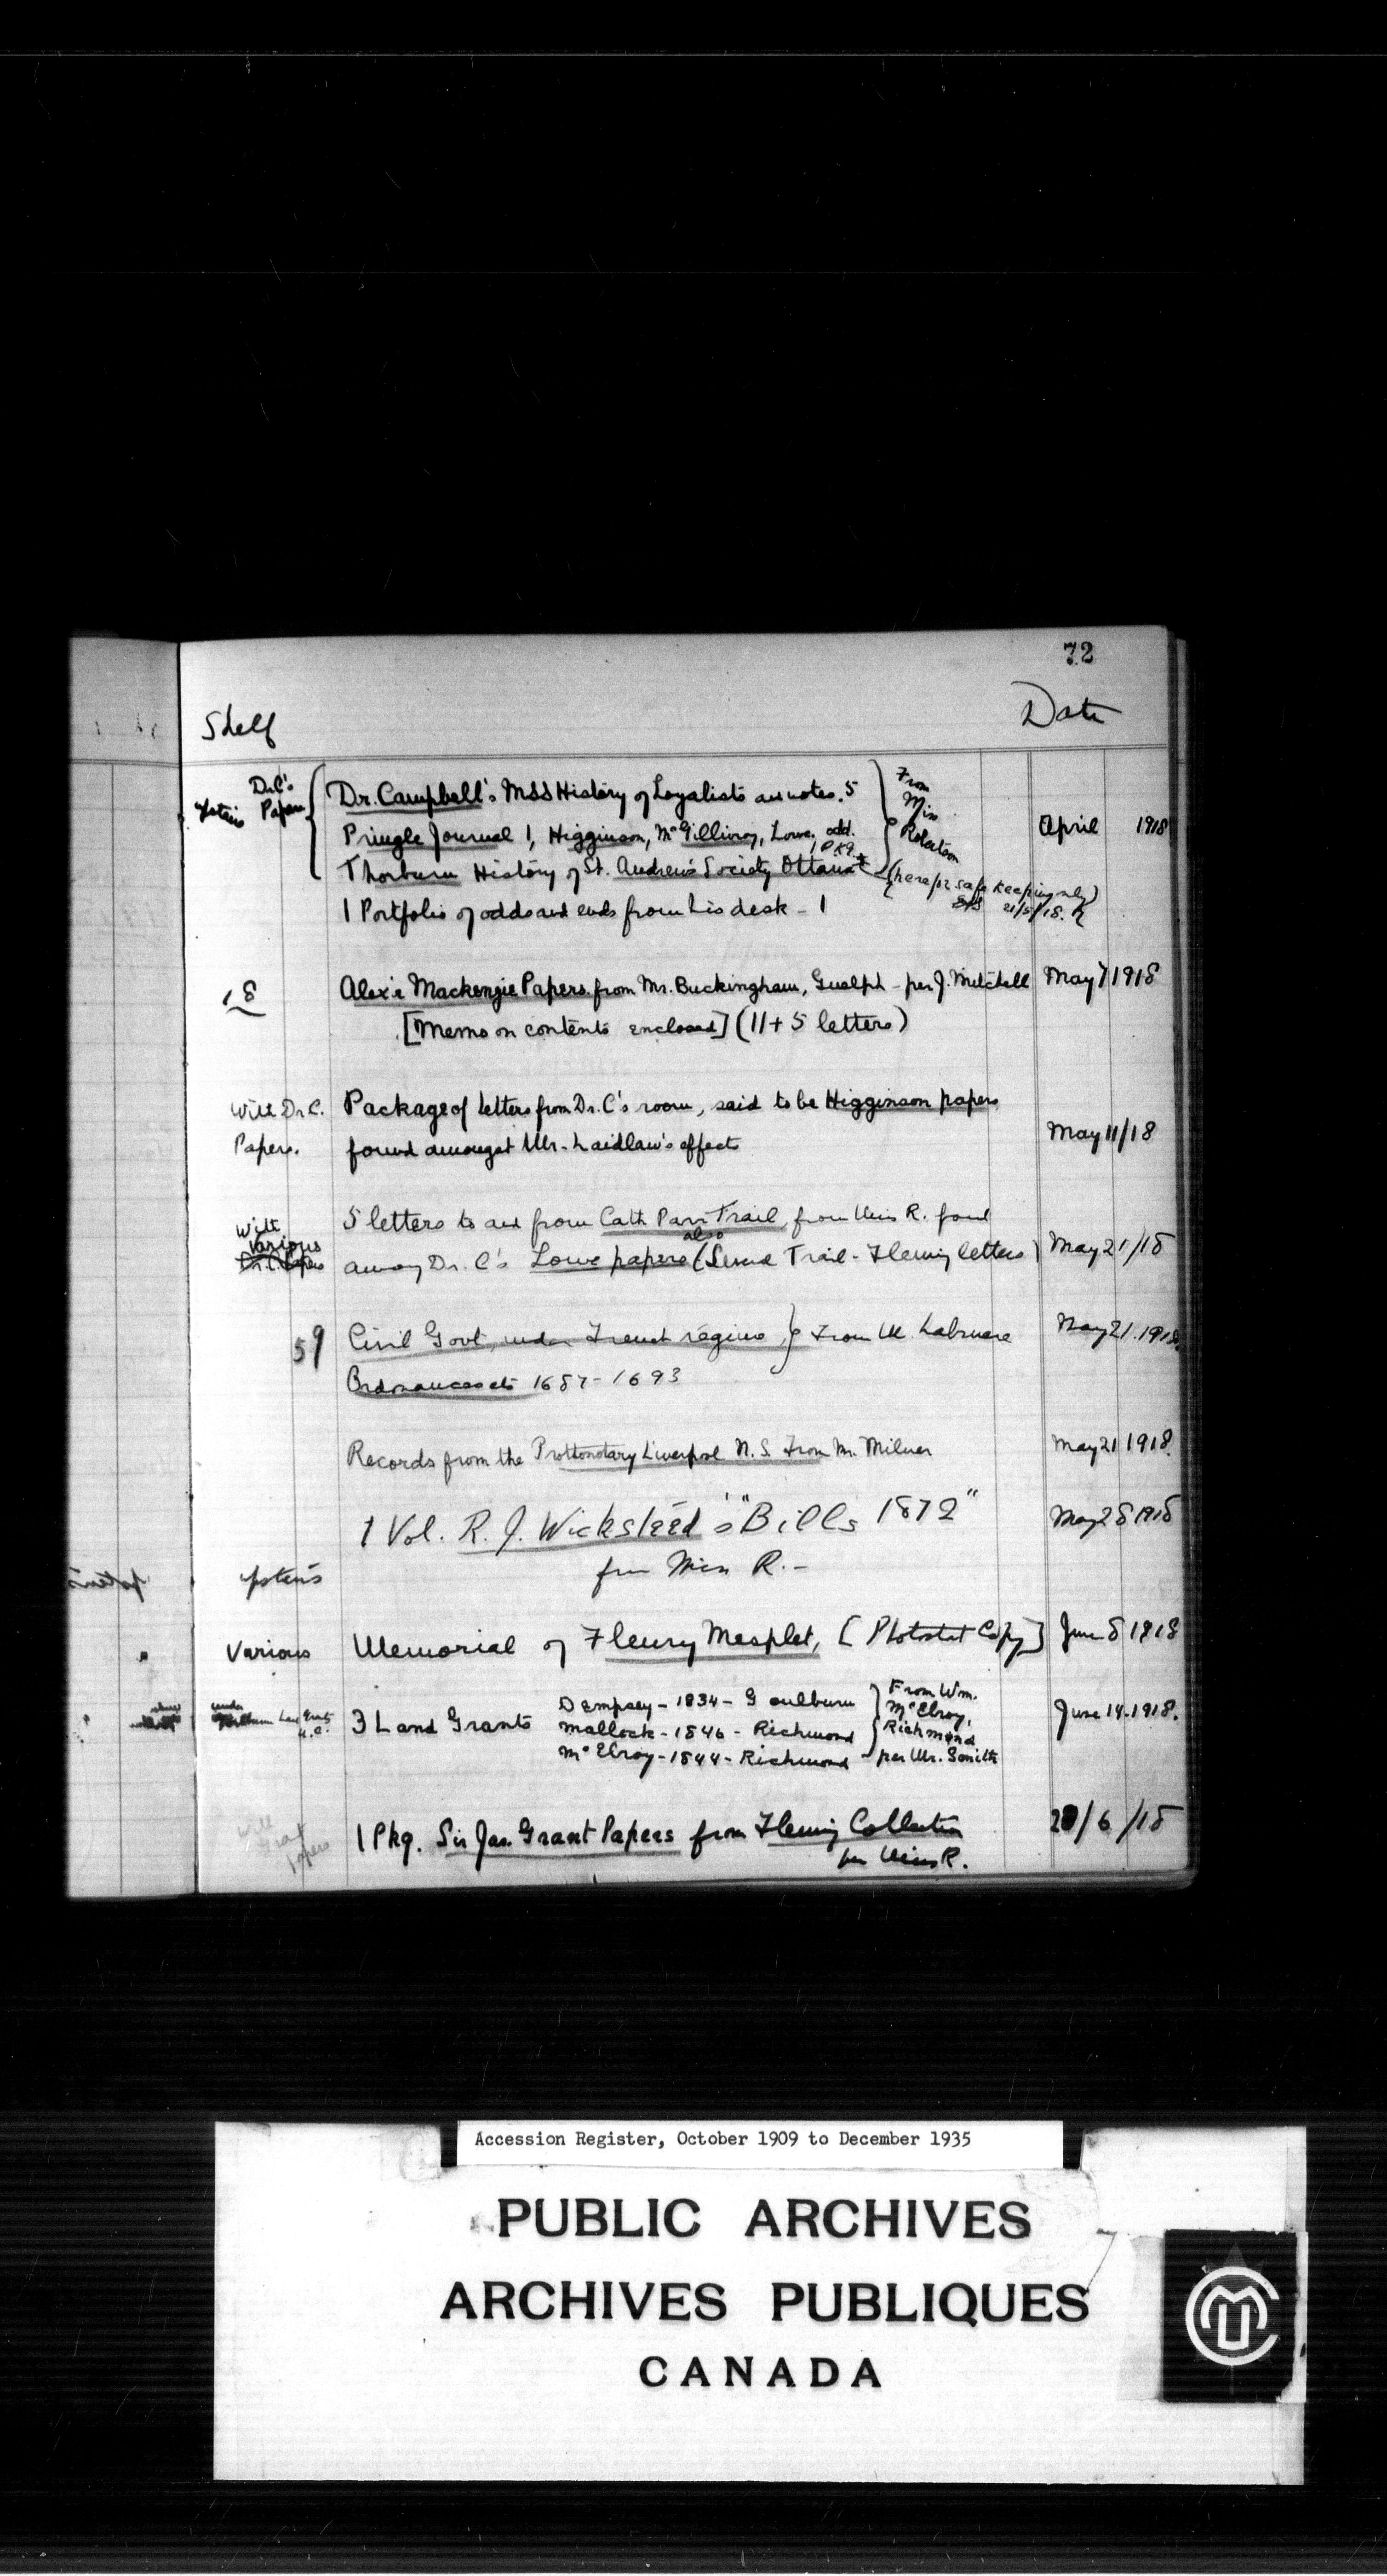 72
Shelf
Date
Dr. C's
Upstairs Papers
Dr. Campbell's MSS History of Loyalists and notes. 5
From Miss Robertson
April 1918
Pringle Journal 1, Higginson, McGillivray, Lowe, odd.
1 Pkg.
Thorburn History of St. Andrew's Society Ottawa
(here for safe keeping only)
21/5/18.
1 Portfolio of odds and ends from his desk - 1
18
Alex'r Mackenzie Papers from Mr. Buckingham, Guelph - per J. Mitchell
May 7 1918
[Memo on contents enclosed] (11 + 5 letters)
With Dr. C.
Papers.
Package of letters from Dr. C's room, said to be Higginson papers
found amongst Mr. Laidlaw's effects
May 11/18
With
Various
Dr. C. Papers
5 letters to and from Cath Parr Trail, from Miss R. found
also
among Dr. C's Lowe papers (Several Trail - Fleming letters)
May 21/18
59
Civil Govt, under French régime, } From M.
May 21. 1918.
Ordnances etc 1687-1693
Records from the Prothonotary Liverpool N.S. From Mr. Milner
May 21 1918.
1 Vol. R. J. Wicksteed's "Bills 1872"
May 28 1918
from Miss R. -
Upstairs
Various
Memorial of Fleury Mesplet, [Photostat Copy]
June 8 1918
under
Land Grants
U.C.
3 Land Grants
Dempsey - 1834 - Goulburn
Mallock - 1846 - Richmond
McElroy - 1844 - Richmond
From Wm.
McElroy,
Richmond
per Mr. Smith
June 14. 1918.
With
Grant
Papers
1 Pkg. Sir Jas. Grant Papers from Fleming Collection
per Miss R.
/6/18
Accession Register, October 1909 to December 1935
PUBLIC ARCHIVES
ARCHIVES PUBLIQUES
CANADA